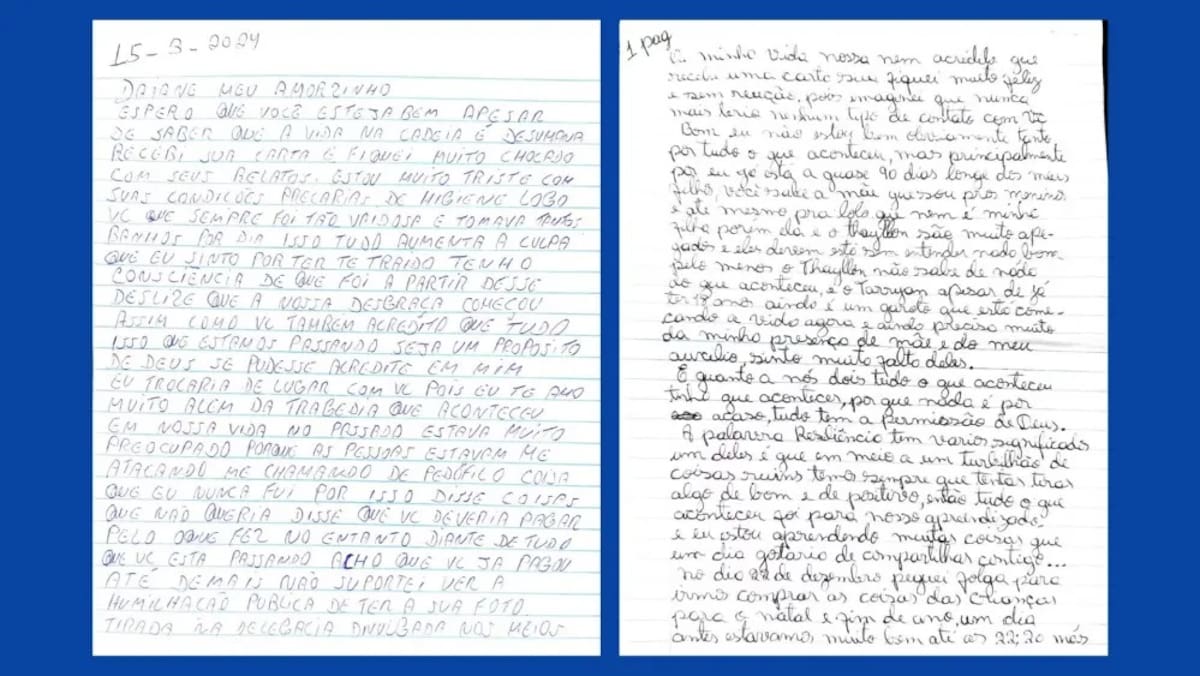 15-3-2024
DAIANE MEU AMORZINHO
ESPERO QUE VOCÊ ESTEJA BEM APESAR
DE SABER QUE A VIDA NA CADEIA É DESUMANA
RECEBI SUA CARTA E FIQUEI MUITO CHOCADO
COM SEUS RELATOS. ESTOU MUITO TRISTE COM
SUAS CONDIÇÕES PRECARIAS DE HIGIENE LOGO
VC QUE SEMPRE FOI TÃO VAIDOSA E TOMAVA TANTOS
BANHOS POR DIA ISSO TUDO AUMENTA A CULPA
QUE EU SINTO POR TER TE TRAIDO TENHO
CONSCIÊNCIA DE QUE FOI A PARTIR DESSE
DESLIZE QUE A NOSSA DESGRAÇA COMEÇOU
ASSIM COMO VC TAMBÉM ACREDITO QUE TUDO
ISSO QUE ESTAMOS PASSANDO SEJA UM PROPOSITO
DE DEUS SE PUDESSE ACREDITE EM MIM
EU TROCARIA DE LUGAR COM VC POIS EU TE AMO
MUITO ALEM DA TRAGEDIA QUE ACONTECEU
EM NOSSA VIDA NO PASSADO ESTAVA MUITO
PREOCUPADO PORQUE AS PESSOAS ESTAVAM ME
ATACANDO ME CHAMANDO DE PEDÓFILO COISA
QUE EU NUNCA FUI POR ISSO DISSE COISAS
QUE NÃO QUERIA DISSE QUE VC DEVERIA PAGAR
PELO QUE FEZ NO ENTANTO DIANTE DE TUDO
QUE VC ESTA PASSANDO ACHO QUE VC JA PAGOU
ATÉ DEMAIS NÃO SUPORTEI VER A
HUMILHAÇÃO PUBLICA DE TER A SUA FOTO
TIRADA NA DELEGACIA DIVULGADA NOS MEIOS
1 pag
minha vida, nossa nem acredito que
recebi uma carta sua fiquei muito feliz
e sem reação, pois imaginei que nunca
mais teria nenhum tipo de contato com vc
Bom eu não estou bem obviamente tanto
por tudo o que aconteceu, mas principalmente
por eu já está a quase 90 dias longe dos meus
filho, você sabe a mãe que sou pros meninos
e até mesmo, pra lolo que nem é minha
filha porém ela e o Thayllon são muito ape-
gados e eles devem está sem entender nada, bom
pelo menos o Thayllon não sabe de nada
do que aconteceu, e o Tarryan apesar de já
ter 18 anos ainda é um garoto que está come-
çando a vida agora e ainda precisa muito
da minha presença de mãe e do meu
auxilio, sinto muito falta deles.
E quanto a nós dois tudo o que aconteceu
tinha que acontecer, por que nada é por
acaso, tudo tem a permissão de Deus.
A palavra Resiliência tem varios significados
um deles é que em meio a um turbilhão de
coisas ruins temos sempre que tentar tirar
algo de bom e de positivo, então tudo o que
aconteceu foi para nosso aprendizado
e eu estou aprendendo muitas coisas que
um dia gotaria de compartilhar contigo...
no dia 22 de dezembro peguei folga para
irmos comprar as coisas das crianças
para o natal e fim de ano, um dia
antes estavamos muito bem até as 22:20 mas